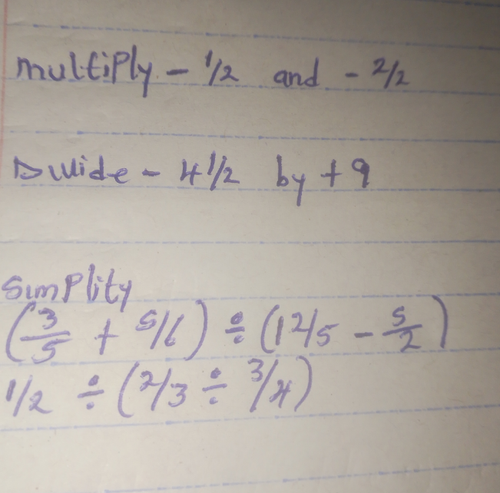 multiply - 1/2 and - 2/2
Divide - 4 1/2 by + 9
Simplity
(3/5 + 5/6) ÷ (12/5 - 5/2)
1/2 ÷ (2/3 ÷ 3/4)